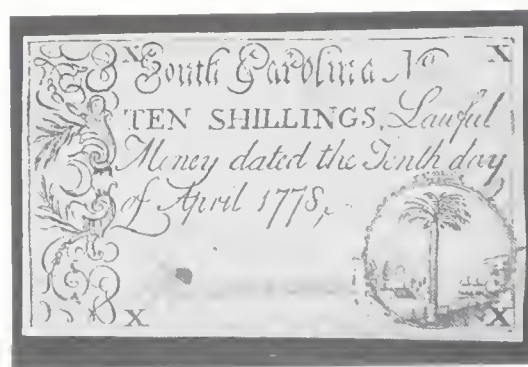 X South Carolina No X
TEN SHILLINGS, Lawful
Money dated the Tenth day
of April 1778,
X X